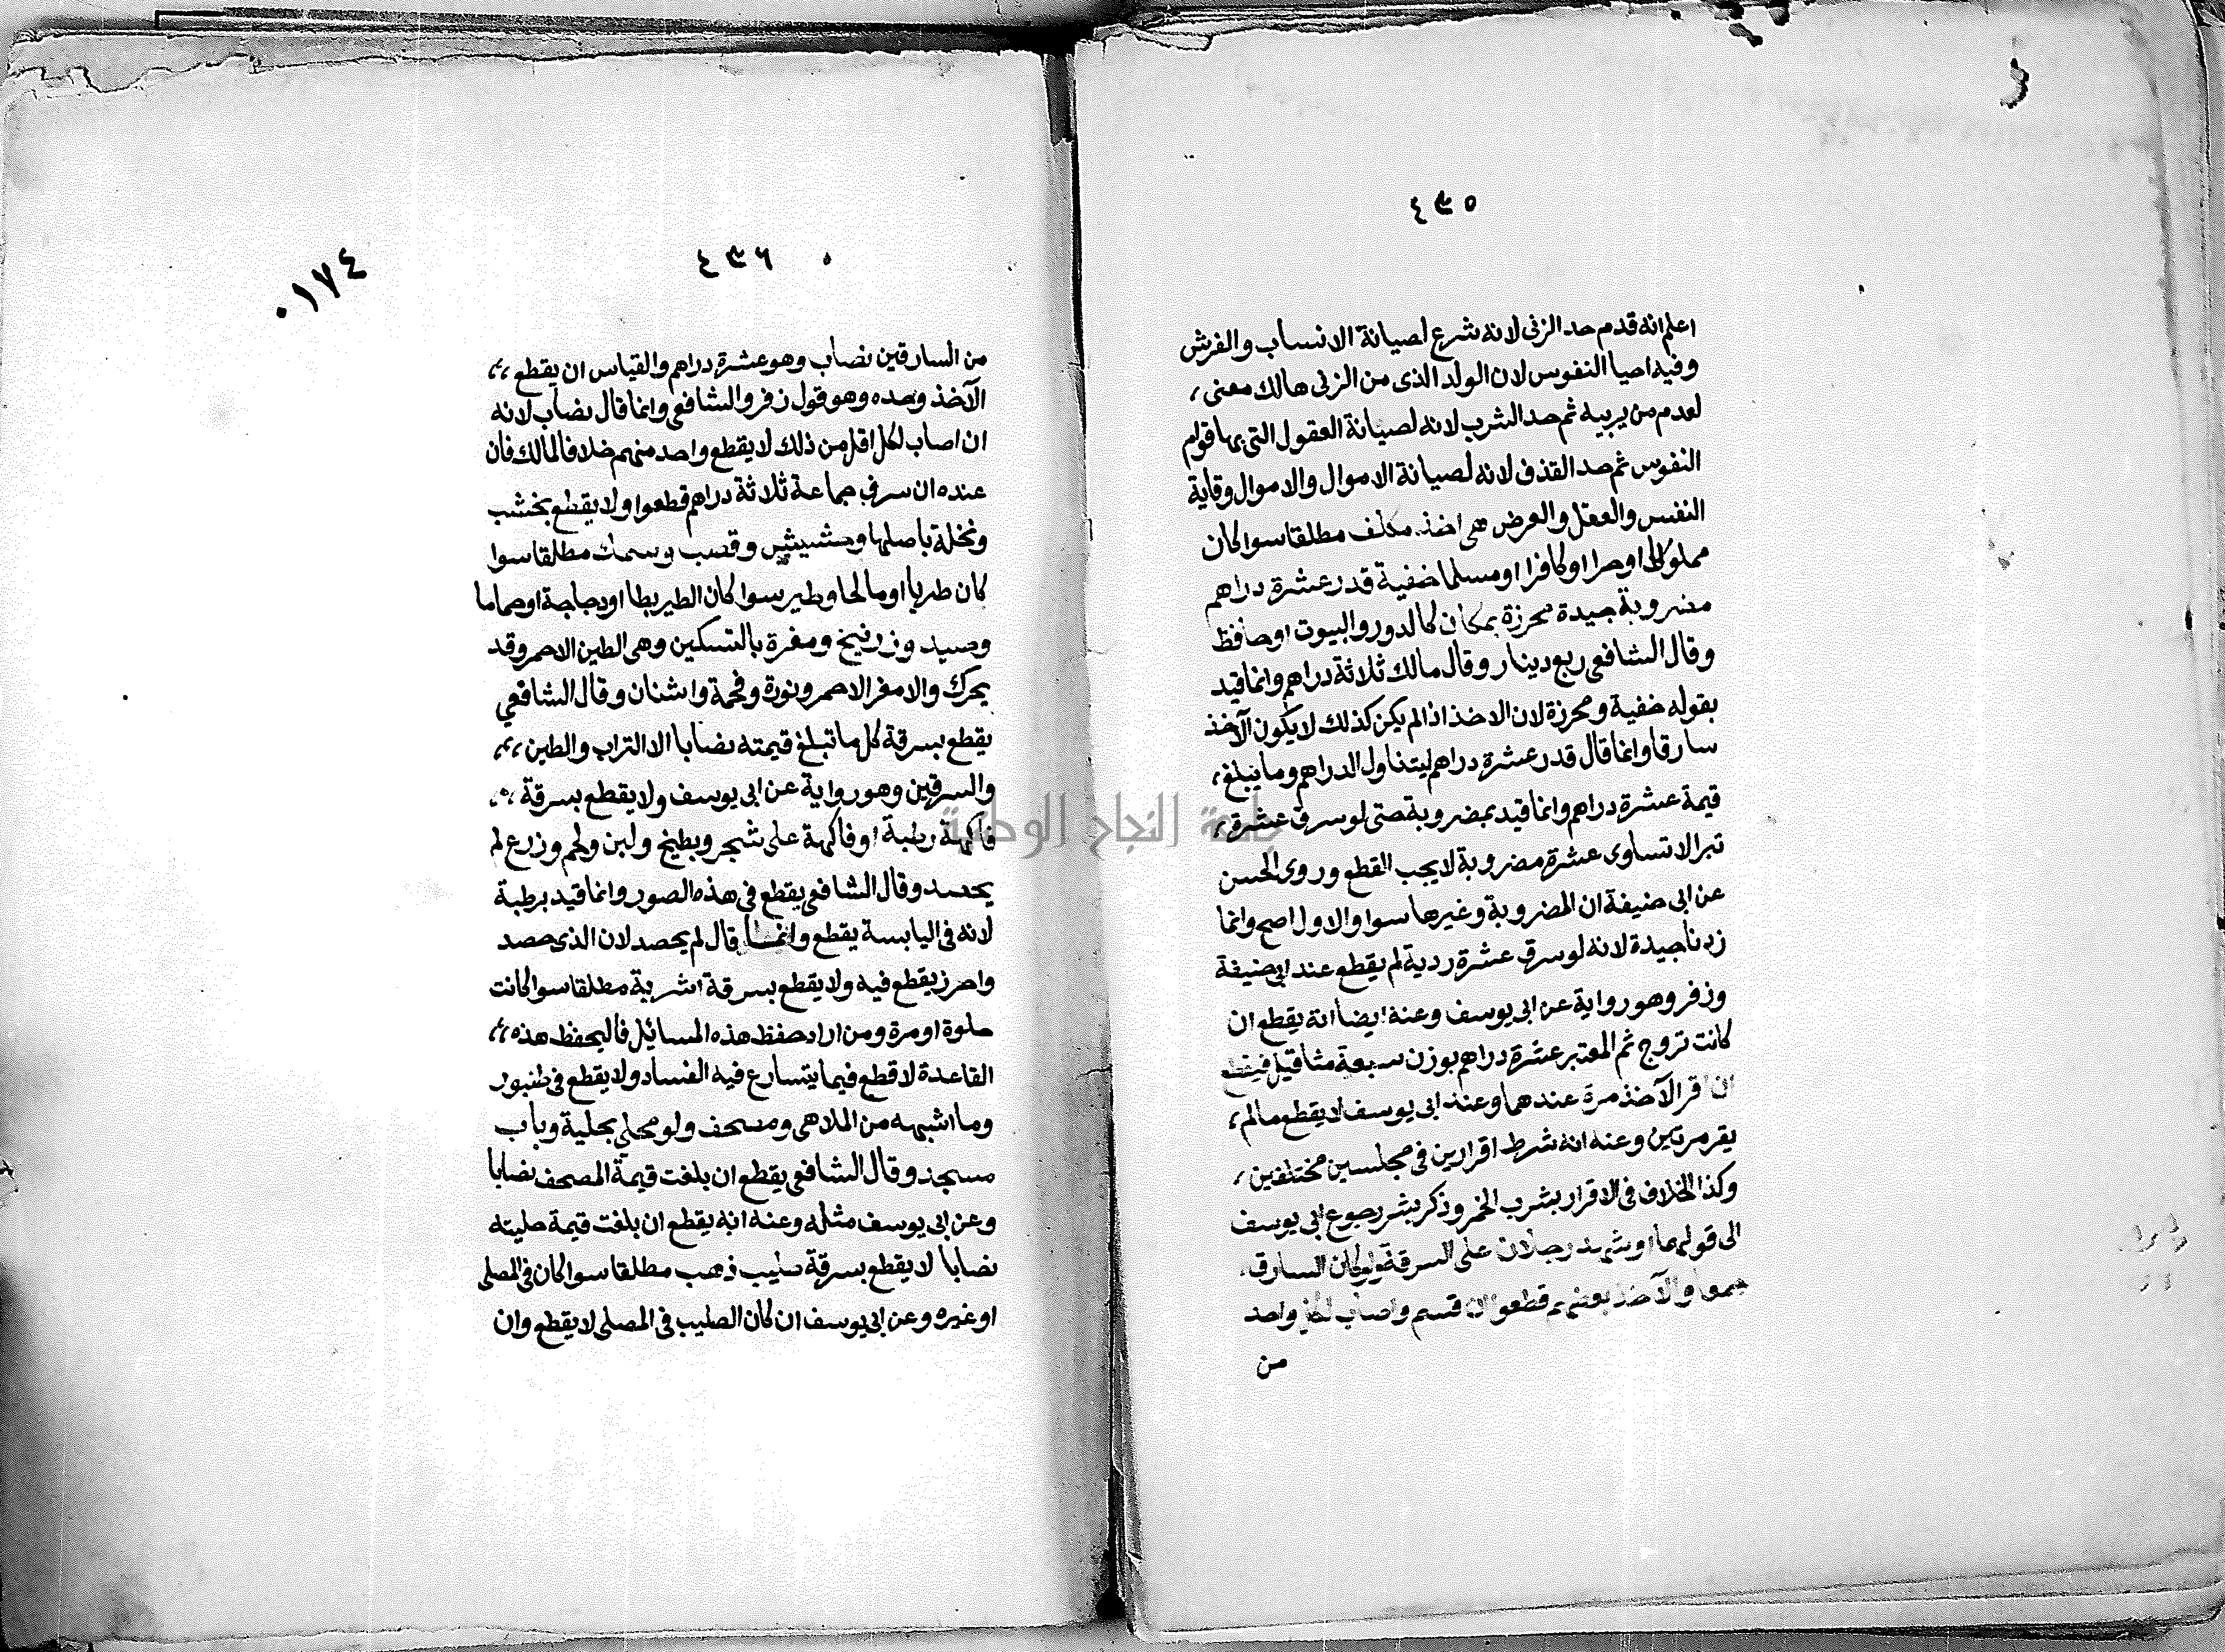 ٤٣٥
اعلم انه قدم حد الزنى لانه شرع لصيانة الانساب والفرش
وفيه احيا النفوس لان الولد الذى من الزنى هالك معنى
لعدم من يربيه ثم حد الشرب لانه لصيانة العقول التى بها قوام
النفوس ثم حد القذف لانه لصيانة الاموال والاموال وقاية
النفس والعقل والعرض هى اخذ مكلف مطلقا سوا كان
مملوكا او حرا او كافرا او مسلما خفية قدر عشرة دراهم
مضروبة جيدة محرزة بمكان كالدور والبيوت او حافظ
وقال الشافعى ربع دينار وقال مالك ثلاثة دراهم وانما قيد
بقوله خفية ومحرزة لان الاخذ اذا لم يكن كذلك لا يكون الآخذ
سارقا وانما قال قدر عشرة دراهم ليتناول الدراهم وما يبلغ
قيمة عشرة دراهم وانما قيد بمضروبة حتى لو سرق عشرة
تبرا لا تساوى عشرة مضروبة لا يجب القطع وروى الحسن
عن ابى حنيفة ان المضروبة وغيرها سوا والاول اصح وانما
زدنا جيدة لانه لو سرق عشرة ردية لم يقطع عند ابى حنيفة
وزفر وهو رواية عن ابى يوسف وعنه ايضا انه يقطع ان
كانت تروج ثم المعتبر عشرة دراهم بوزن سبعة مثاقيل فيقطع
ان اقر الآخذ مرة عندهما وعند ابى يوسف لا يقطع مالم
يقر مرتين وعنه انه شرط اقرارين فى مجلسين مختلفين
وكذا الخلاف فى الاقرار بشرب الخمر وذكر بشر رجوع ابى يوسف
الى قولهما او شهد رجلان على السرقة ولو كان السارق
جمعا والآخذ بعضهم قطعوا ان قسم واصاب لكل واحد
من
٠١٧٤
٤٣٦
من السارقين نصاب وهو عشرة دراهم والقياس ان يقطع
الآخذ وحده وهو قول زفر والشافعى وانما قال نصاب لانه
ان اصاب لكل اقل من ذلك لا يقطع واحد منهم خلافا لمالك فان
عنده ان سرق جماعة ثلاثة دراهم قطعوا ولا يقطع بخشب
ونخلة باصلها وحشيش وقصب وسمك مطلقا سوا
كان طريا او مالحا وطير سوا كان الطير بطا او دجاجة او حماما
وصيد وزرنيخ ومغرة بالتسكين وهى الطين الاحمر وقد
يحرك والامغر الاحمر ونورة وفحمة واشنان وقال الشافعي
يقطع بسرقة كل ما تبلغ قيمته نصابا الا التراب والطين
والسرقين وهو رواية عن ابى يوسف ولا يقطع بسرقة
فاكهة رطبة او فاكهة على شجر وبطيخ ولبن ولحم وزرع لم
يحصد وقال الشافعى يقطع فى هذه الصور وانما قيد برطبة
لانه فى اليابسة يقطع وانما قال لم يحصد لان الذى حصد
واحرز يقطع فيه ولا يقطع بسرقة اشربة مطلقا سوا كانت
حلوة او مرة ومن اراد حفظ هذه المسائيل فاليحفظ هذه
القاعدة لا قطع فيما يتسارع فيه الفساد ولا يقطع فى طنبور
وما اشبهه من الملاهى ومصحف ولو محلي بحلية وباب
مسجد وقال الشافعى يقطع ان بلغت قيمة المصحف نصابا
وعن ابى يوسف مثله وعنه انه يقطع ان بلغت قيمة حليته
نصابا لا يقطع بسرقة صليب ذهب مطلقا سوا كان فى المصلى
او غيره وعن ابى يوسف ان كان الصليب فى المصلى لا يقطع وان
جامعة النجاح الوطنية